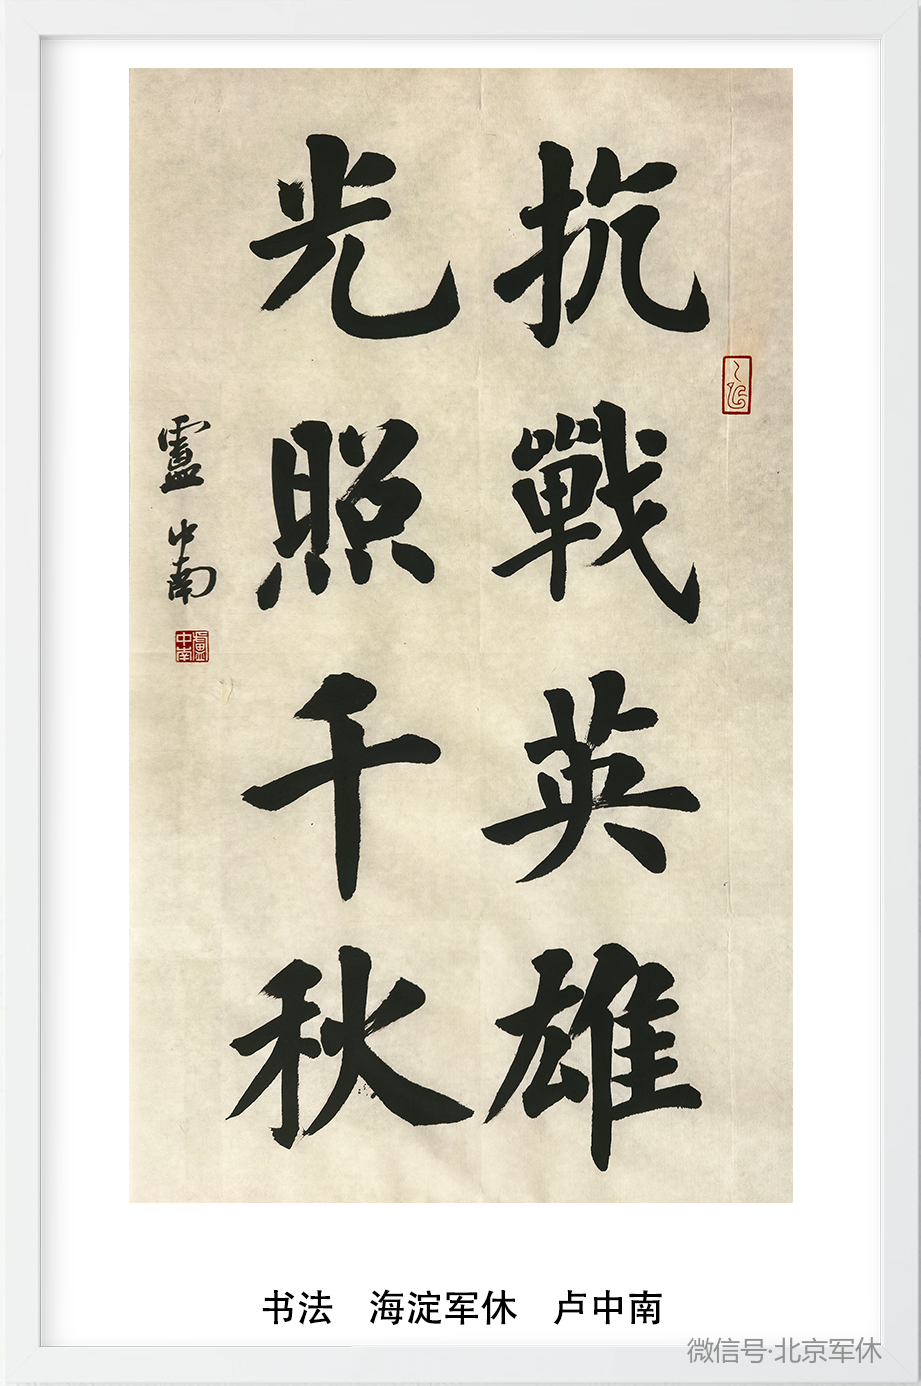 抗戰英雄
光照千秋
盧中南
盧中南
书法 海淀军休 卢中南
微信号·北京军休